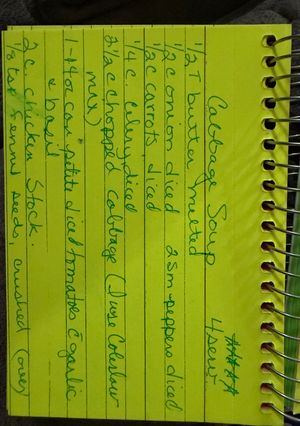 Cabbage Soup 4 serv.
1/2 T butter melted
1/2 c onion diced 2 sm. peppers diced
1/2 c carrots diced
1/4 c. celery diced
2 1/2 c chopped Cabbage (I use Coleslaw
mix)
1-14 oz can petite diced tomatoes c garlic
& basil
2 c chicken Stock.
1/2 tsp fennel seeds, crushed (over)